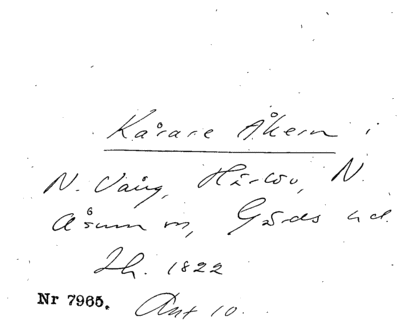 Kårare Åkern i
N. Vång, Härlöv, N.
Åsum m, Gärds hd.
Jh. 1822
Nr 7965. Ant 10.